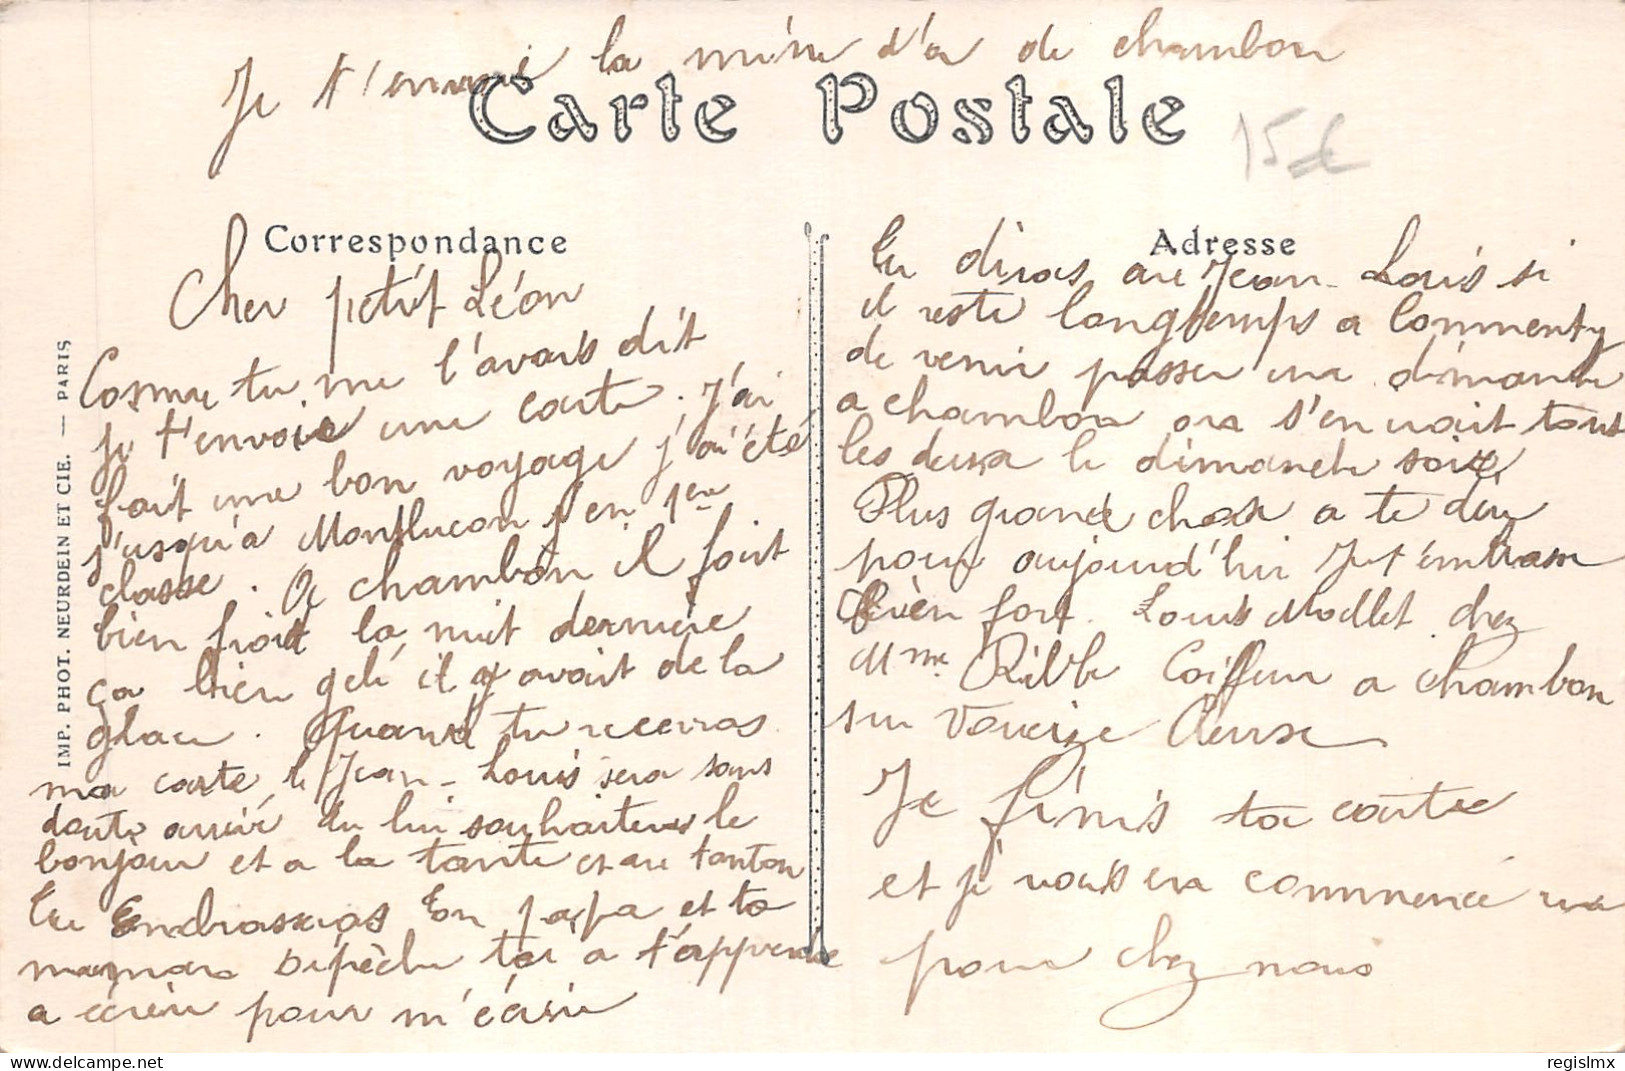 Je t'envoie la mine d'or de chambon
Carte Postale
15€
Correspondance
Cher petit Léon
Comme tu me l'avais dit
je t'envoie une carte. J'ai
fait une bon voyage j'ai été
j'usqu'a Montluçon j en 1ere
classe. A chambon il fait
bien froid la nuit dernière
ça bien gelé il y avait de la
glace. Quand tu receveras
ma carte le Jean-Louis sera sans
doute arrivé tu lui souhaiteras le
bonjour et a la tante et au tonton
tu Embrasseras ton papa et ta
maman Dépèche toi a t'apprendre
a écrire pour m'écrire
Adresse
Tu diras au Jean-Louis si
il reste longtemps a Commentry
de venir passer un dimanche
a chambon on s'en irait tous
les deux le dimanche soir
Plus grand chose a te dire
pour aujourd'hui Je t'embrasse
bien fort. Louis Mollet chez
Mme Ribbe Coiffeur a chambon
sur Voueize Creuse
Je finis ta carte
et je vais en commencé une
pour chez nous
IMP. PHOT. NEURDEIN ET CIE. — PARIS
regislmx